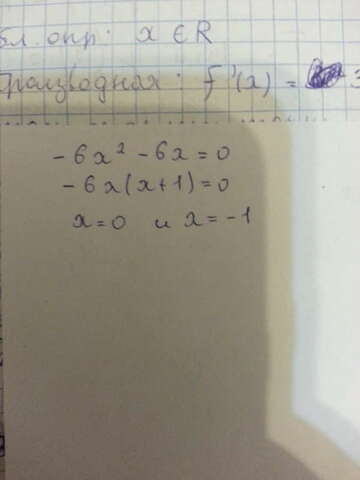 бл. опр: x ∈ R
производная: f'(x) = 3
-6x² - 6x = 0
-6x(x+1) = 0
x = 0 и x = -1